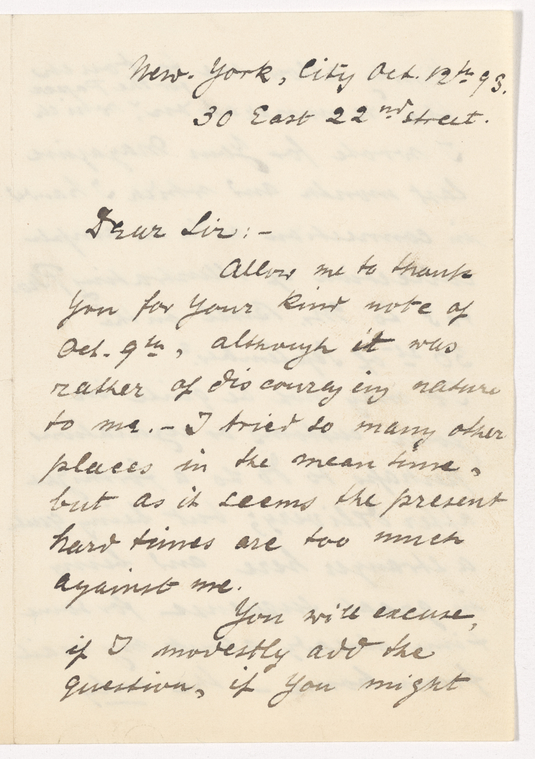 New-York, City Oct. 12th 93.
30 East 22nd street.
Dear Sir:-
Allow me to thank
you for your kind note of
Oct. 9th, although it was
rather of discouraging nature
to me. - I tried so many other
places in the mean time,
but as it seems the present
hard times are too much
against me.
You will excuse,
if I modestly add the
question, if you might